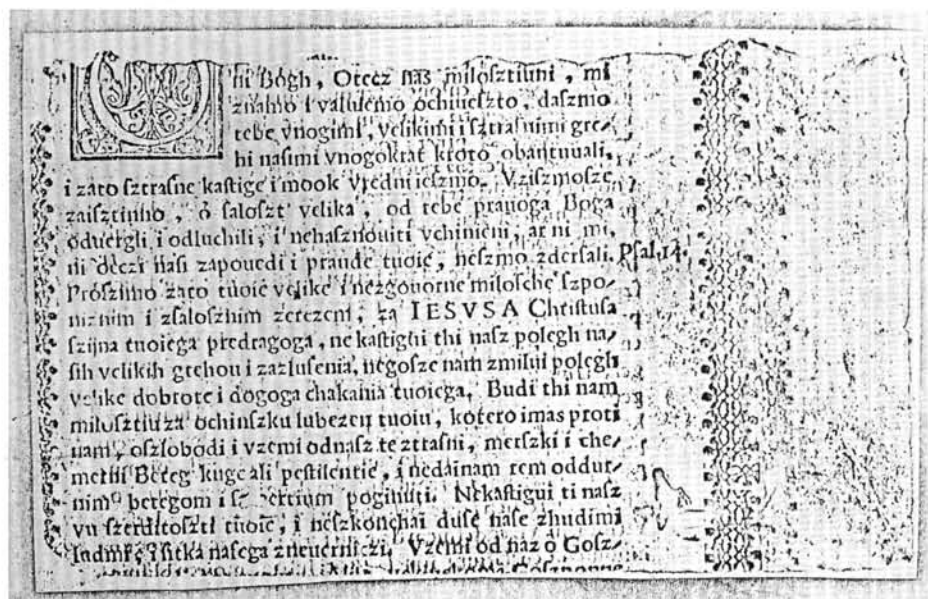 ni Bógh, Otecz nas milosztiuni, mi
znamo i valuiemo ochiueszto, daszmo
tebe vnogimi, velikimi i sztrasnimi gre-
hi nasimi vnogokrat kroto obantuuali,
i zato sztrasne kastige i mook vredni ieszmo. Vziszmosze
zaisztinno, ó saloszt velika, od tebe prauoga Boga
oduergli i odluchili, i nehasznouiti vchinieni, ar ni mi,
ni oczi nasi zapouedi i praude tuoie, neszmo zdersali. Psal. 14.
Prószimo zato tuoie velike i nezgouorne milosche szpo-
niznim i zsalosznim zerczem, za IESVSA Christusa
szijna tuoiega predragoga, ne kastighi thi nasz polegh na-
sih velikih grehou i zazlusenia, negosze nam zmilui polegh
velike dobrote i dogoga chakania tuoiega. Budi thi nam
milosztiu za ochinszku lubezen tuoiu, kotero imas proti
nam, oszlobodi i vzemi odnasz te ztrasni, merszki i che-
merni Beteg kuge ali pestilentie, i nedainam tem oddur-
nim betegom i poginuti. Nekastigui ti nasz
vu szerditoszti tuoie, i neszkonchai duse nase zhudimi
ludmi, sitka nasega zneuerniczi. Vzemi od naz o Gosz-